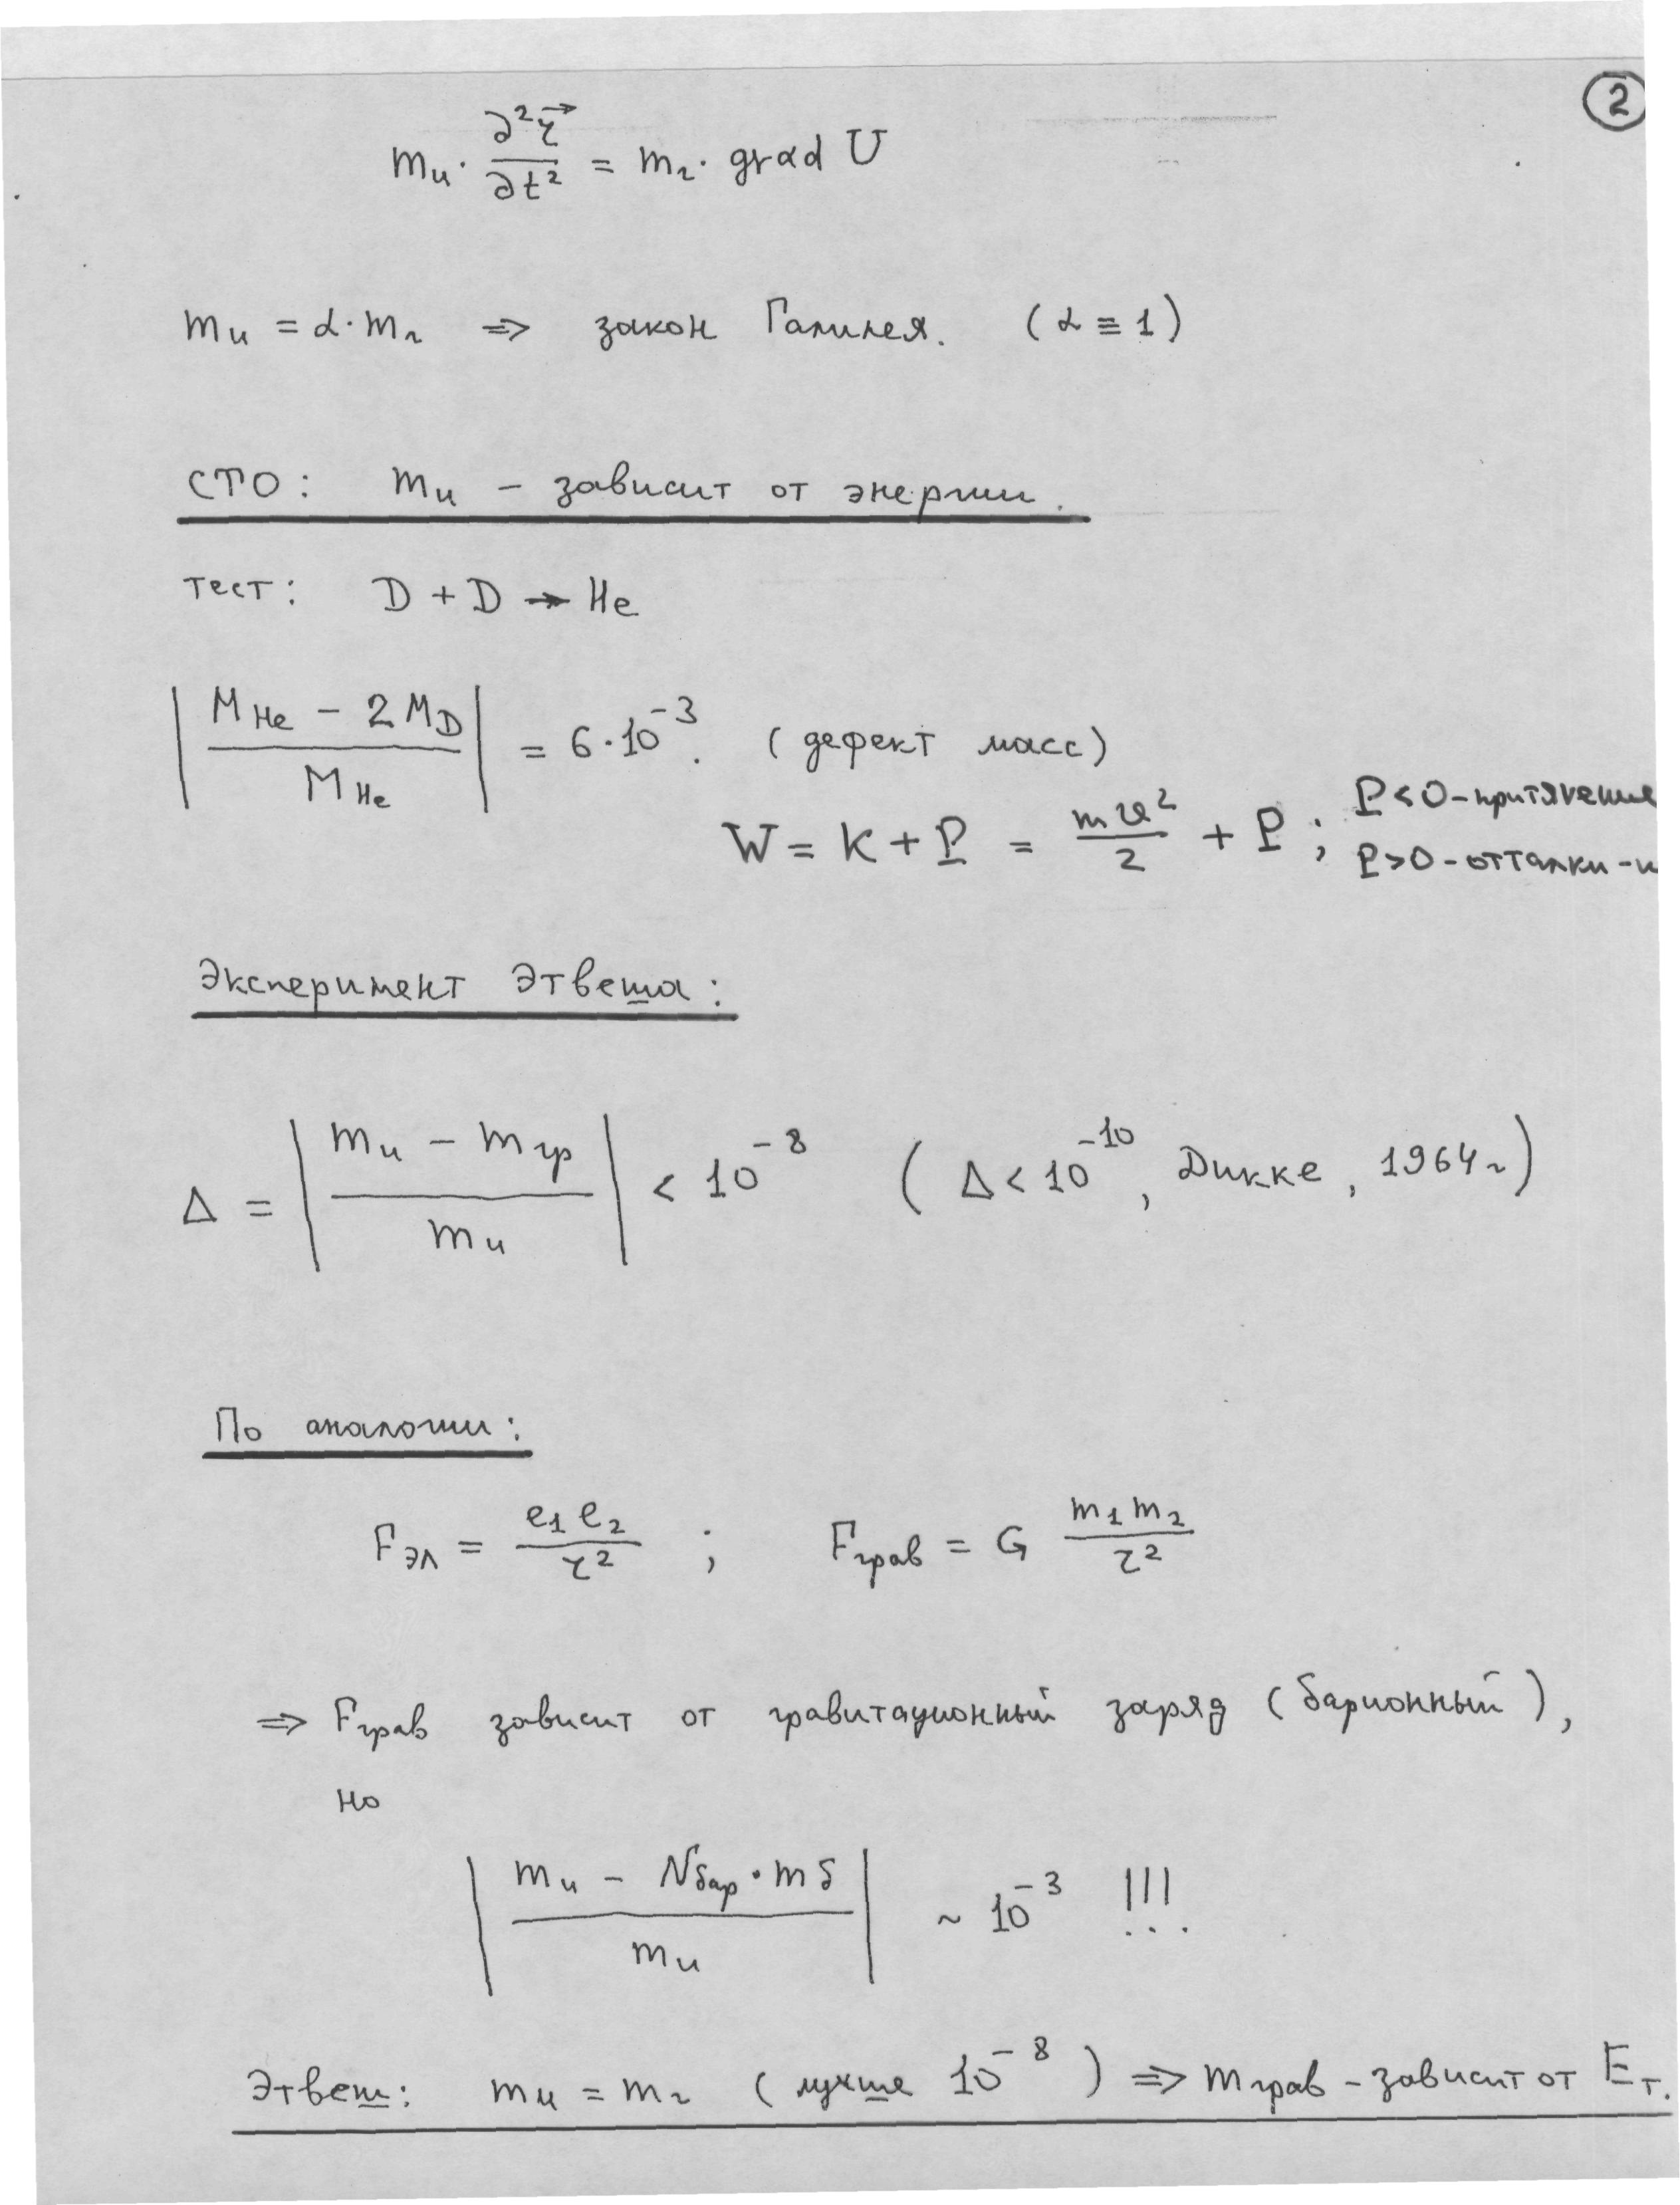 2
mи · ∂²r⃗/∂t² = mг · grad U
mи = α·mг ⇒ закон Галилея. (α ≡ 1)
СТО: mи – зависит от энергии.
тест: D + D → He
|(MHe – 2MD)/MHe| = 6·10⁻³. (дефект масс)
W = K + P = mv²/2 + P ; P<0 – притяжение
P>0 – отталки-и
Эксперимент Этвеша:
Δ = |(mи – mгр)/mи| < 10⁻⁸ (Δ < 10⁻¹⁰, Дикке, 1964г)
По аналогии:
Fэл = e₁e₂/r² ; Fграв = G m₁m₂/r²
⇒ Fграв зависит от гравитационный заряд (барионный),
но
|(mи – Nбар·mб)/mи| ~ 10⁻³ !!!
Этвеш: mи = mг (лучше 10⁻⁸) ⇒ mграв – зависит от Eт.